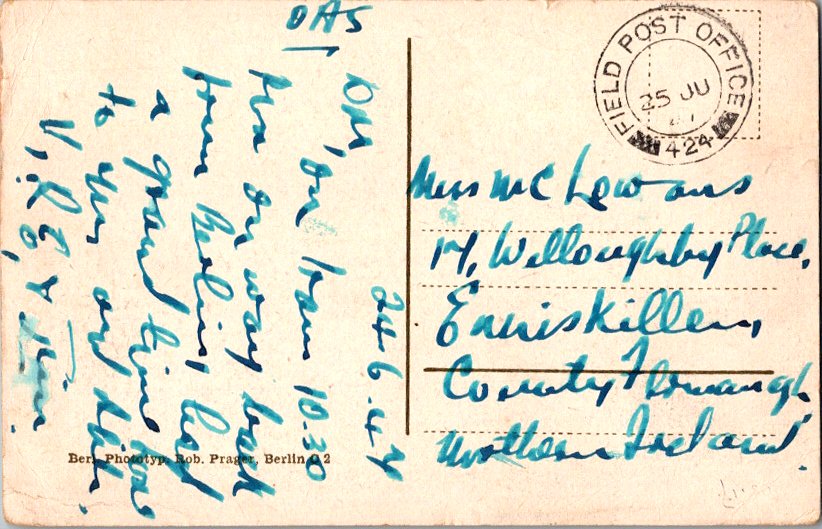 OAS
24.6.47
Dear, on train 10.30
on way back
from Berlin, had
a grand time
to you and
FIELD POST OFFICE
25 JU
47
424
Mrs Mc Lewans
14, Willoughby Place,
Enniskillen,
County Fermanagh
Northern Ireland.
Berl. Phototyp. Rob. Prager, Berlin O 2